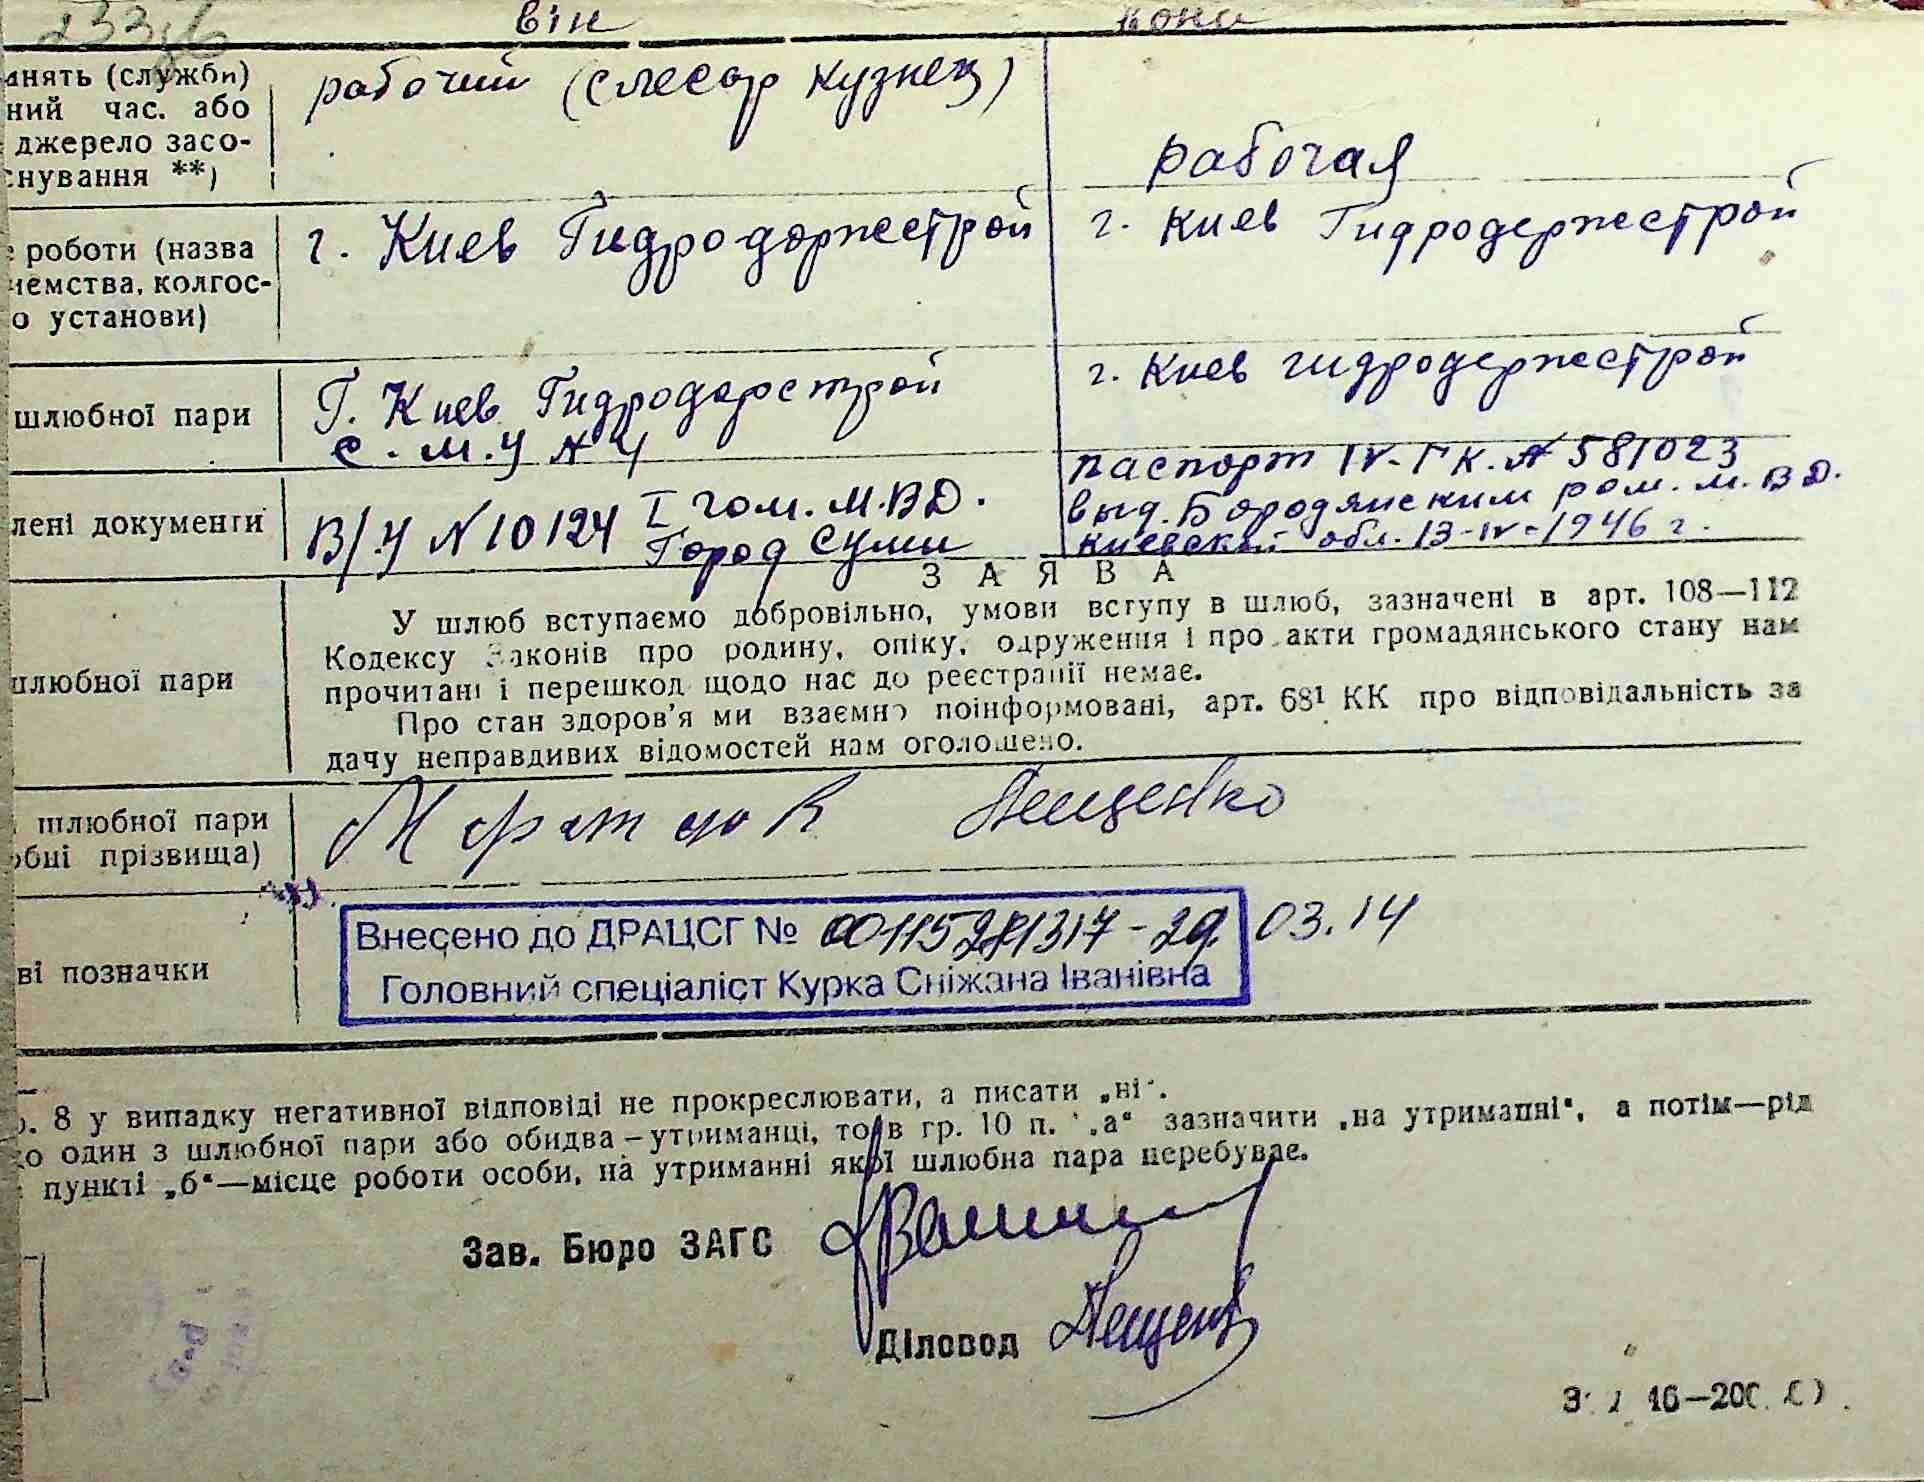 він вона
анять (служби)
ний час. або
джерело засо-
снування **)
рабочий (слесар кузнец)
рабочая
роботи (назва
ємства, колгос-
о установи)
г. Киев Гидродоржестрой
г. Киев Гидродержестрой
шлюбної пари
Г. Киев Гидродорстрой
с.м.у №4
г. Киев гидродержестрой
лені документи
В/У №10124 I гом. М.ВД.
Город Суми
паспорт IV-ГК. № 581023
выд. Бородянским ром. М.ВД.
Киевской обл. 13-IV-1946 г.
ЗАЯВА
шлюбної пари
У шлюб вступаємо добровільно, умови вступу в шлюб, зазначені в арт. 108—112
Кодексу Законів про родину, опіку, одруження і про акти громадянського стану нам
прочитані і перешкод щодо нас до реєстрації немає.
Про стан здоров'я ми взаємно поінформовані, арт. 68¹ КК про відповідальність за
дачу неправдивих відомостей нам оголошено.
шлюбної пари
обні прізвища)
Лещенко
ві позначки
Внесено до ДРАЦСГ № 00115281317-29.03.14
Головний спеціаліст Курка Сніжана Іванівна
р. 8 у випадку негативної відповіді не прокреслювати, а писати „ні“.
ко один з шлюбної пари або обидва – утриманці, то в гр. 10 п. „а“ зазначити „на утриманні“, а потім—рід
пункті „б“—місце роботи особи, на утриманні якої шлюбна пара перебуває.
Зав. Бюро ЗАГС
Діловод